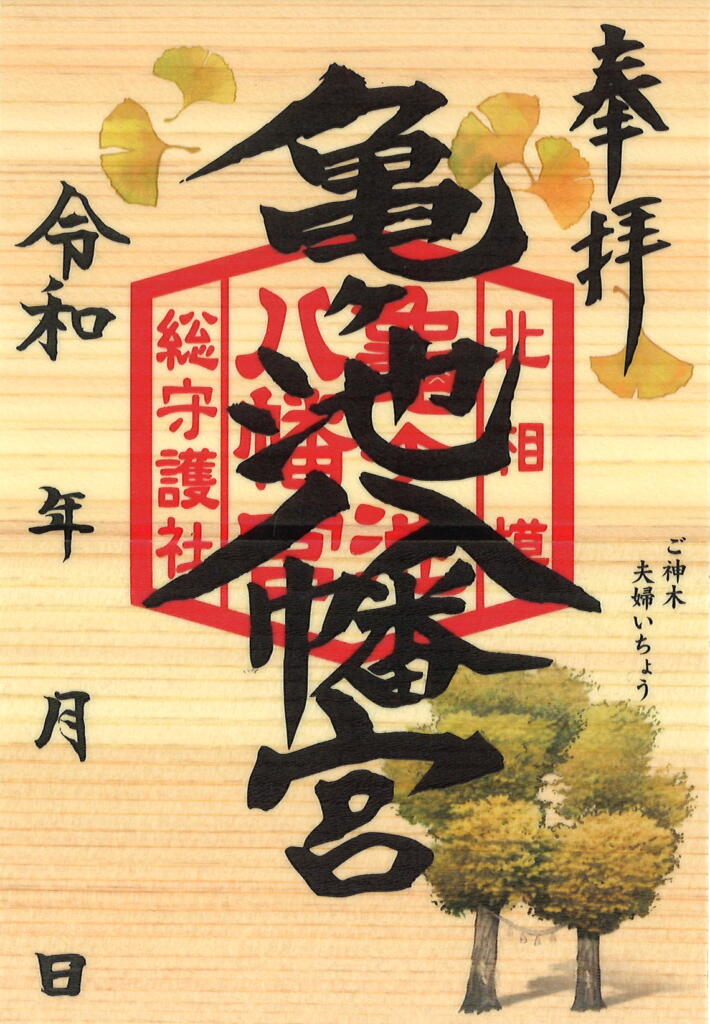 奉拝
亀ヶ池八幡宮
北相模
亀ヶ池
八幡宮
総守護社
ご神木
夫婦いちょう
令和 年 月 日